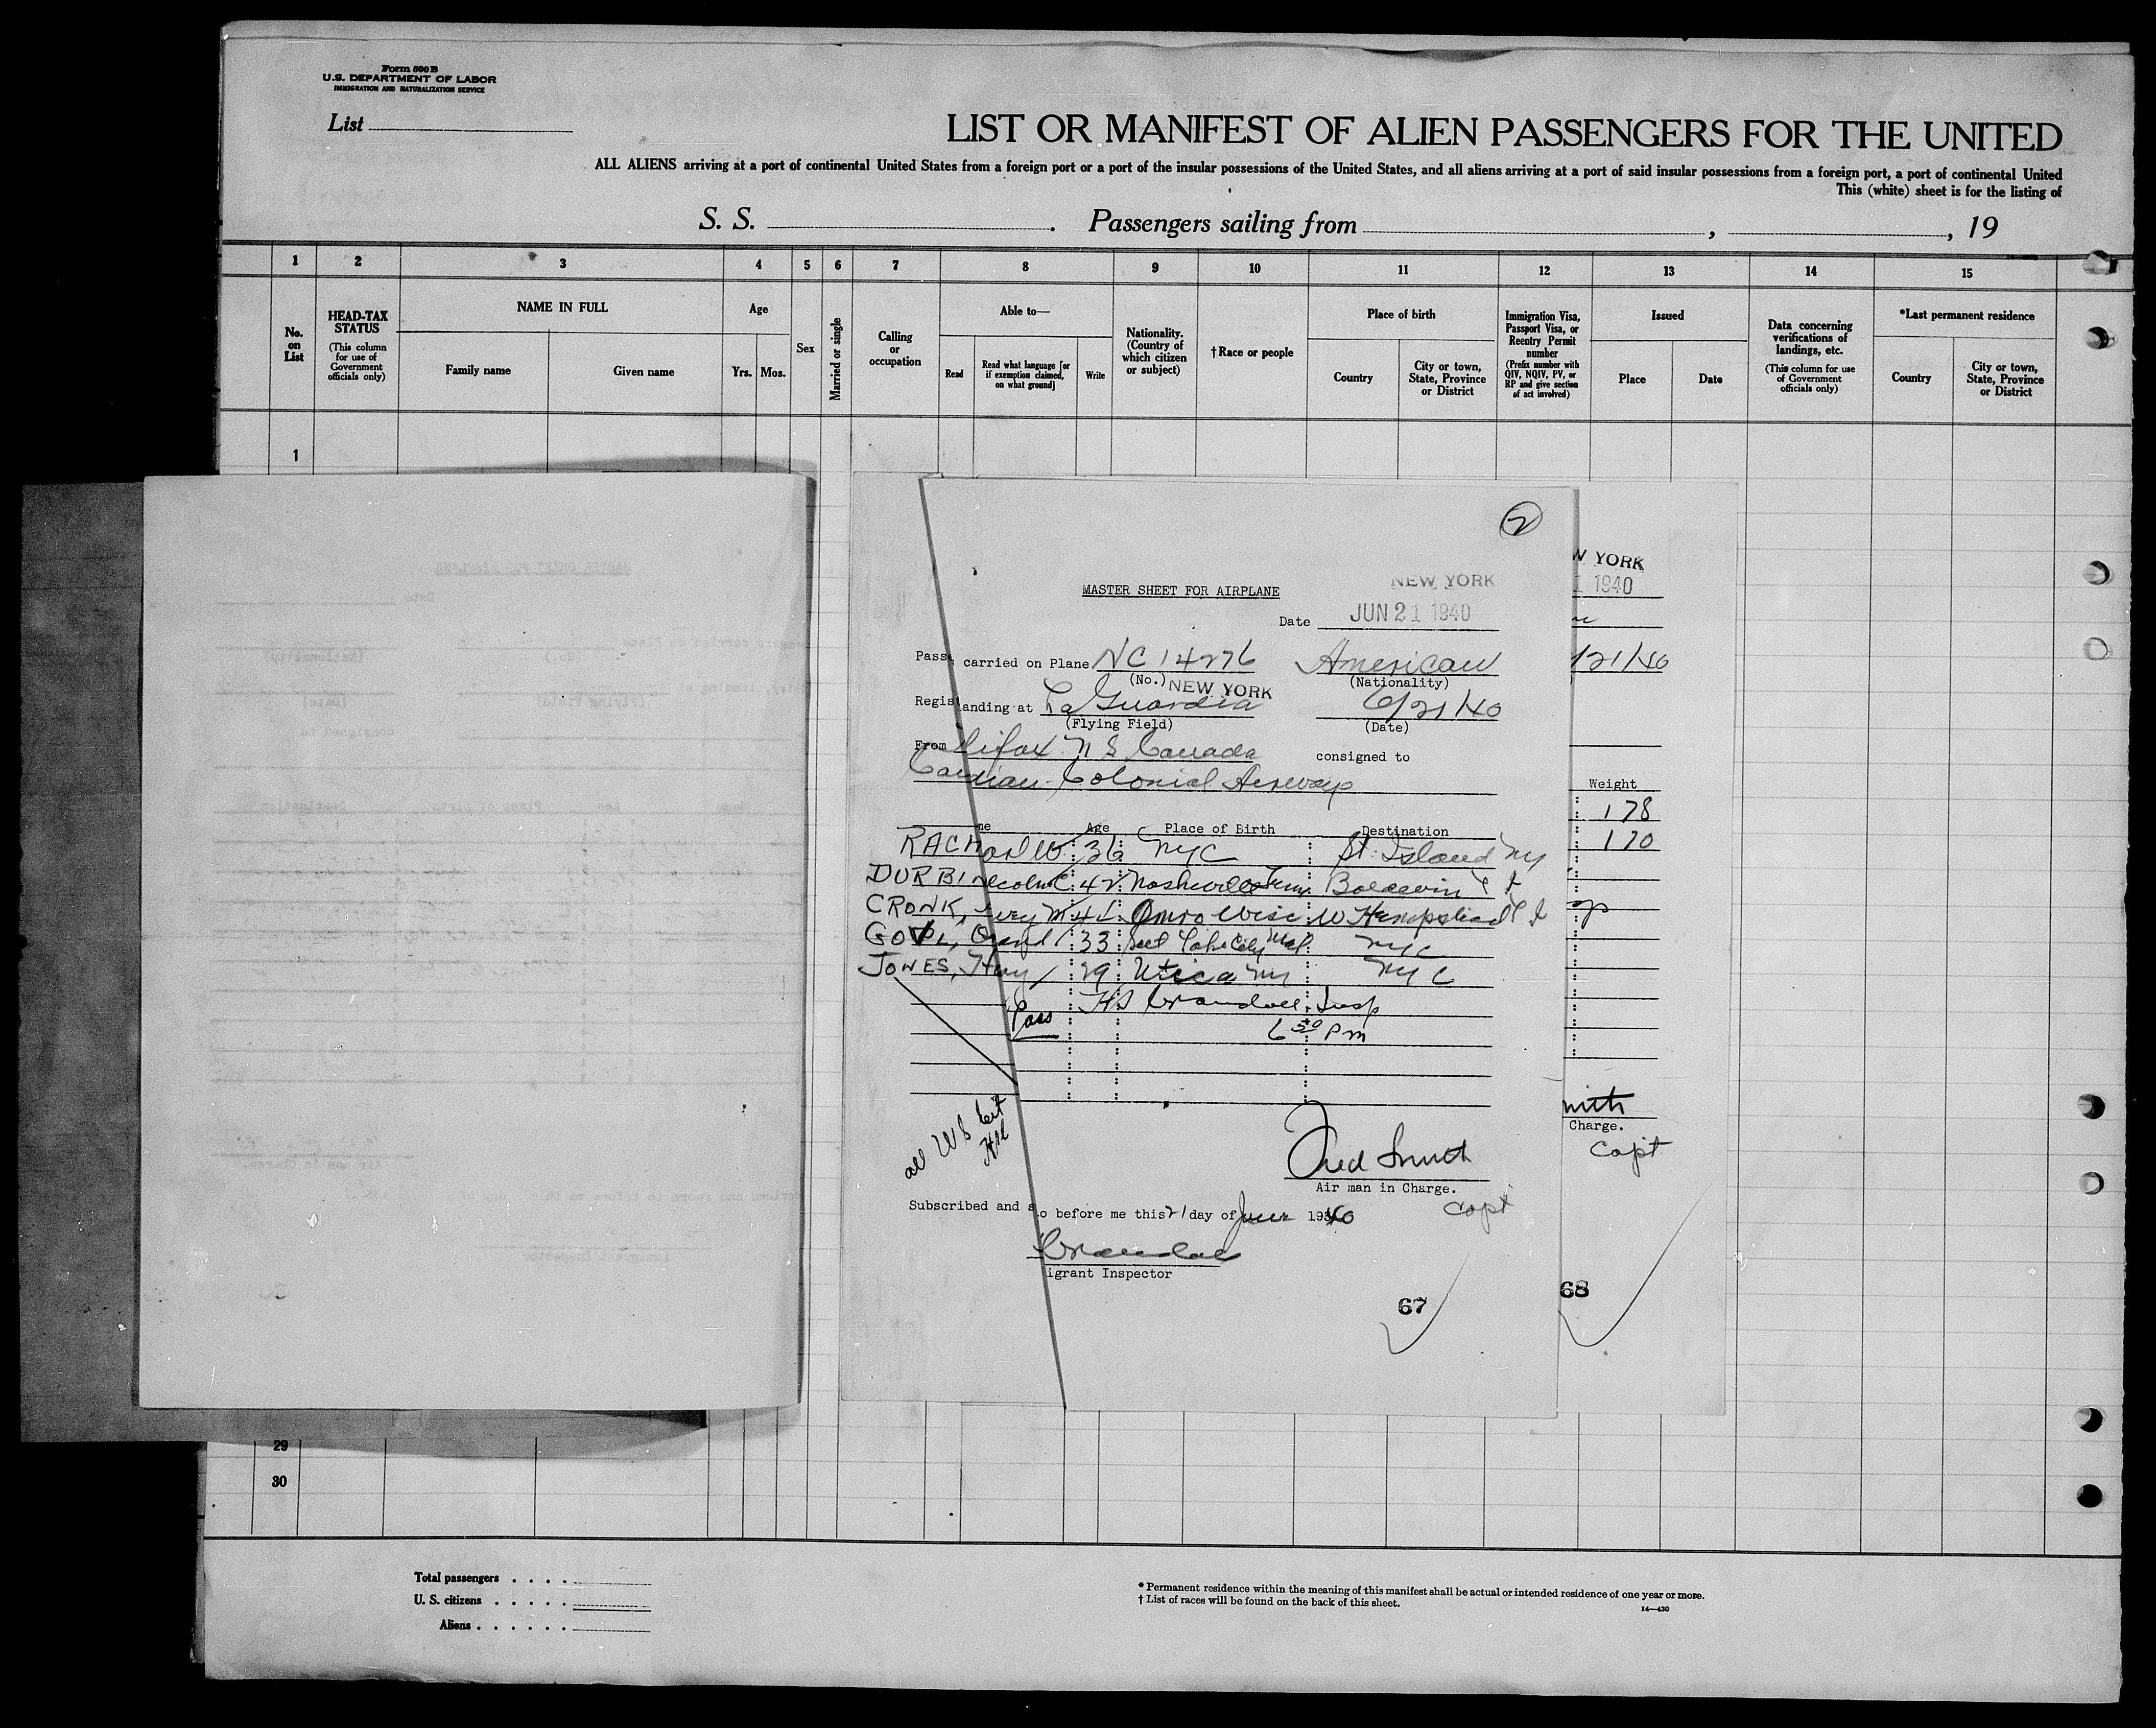 Form 500 B
U.S. DEPARTMENT OF LABOR
IMMIGRATION AND NATURALIZATION SERVICE
List
LIST OR MANIFEST OF ALIEN PASSENGERS FOR THE UNITED
ALL ALIENS arriving at a port of continental United States from a foreign port or a port of the insular possessions of the United States, and all aliens arriving at a port of said insular possessions from a foreign port, a port of continental United
This (white) sheet is for the listing of
S. S. . Passengers sailing from , , 19
1 2 3 4 5 6 7 8 9 10 11 12 13 14 15
No. on List
HEAD-TAX STATUS
(This column for use of Government officials only)
NAME IN FULL
Family name
Given name
Age
Yrs.
Mos.
Sex
Married or single
Calling or occupation
Able to—
Read
Read what language [or if exemption claimed, on what ground]
Write
Nationality. (Country of which citizen or subject)
†Race or people
Place of birth
Country
City or town, State, Province or District
Immigration Visa, Passport Visa, or Reentry Permit number
(Prefix number with QIV, NQIV, PV, or RP and give section of act involved)
Issued
Place
Date
Data concerning verifications of landings, etc.
(This column for use of Government officials only)
*Last permanent residence
Country
City or town, State, Province or District
1
2
MASTER SHEET FOR AIRPLANE
NEW YORK
Date JUN 21 1940
Pass carried on Plane NC 14276 American
(No.) (Nationality)
NEW YORK
Regis anding at La Guardia 6/21/40
(Flying Field) (Date)
From lifax N S Canada consigned to
Colonial Airways
me Age Place of Birth Destination
RACH 36 NYC St. Island NY
DURBI 42 Nashville Tenn. Baldwin L I
CRONK, Omro Wisc W Hempstead L I
33 NYC
JONES, 29 Utica NY NY C
Pass HS Crandall Insp
6 30 Pm
all US
Fred Smith
Air man in Charge.
Capt
Subscribed and s o before me this 21 day of June 1940
Crandall
igrant Inspector
67
W YORK
1 1940
/21/40
Weight
178
170
mith
Charge.
Capt
68
29
30
Total passengers . . . .
U. S. citizens . . . . .
Aliens . . . . . .
* Permanent residence within the meaning of this manifest shall be actual or intended residence of one year or more.
† List of races will be found on the back of this sheet.
14—430